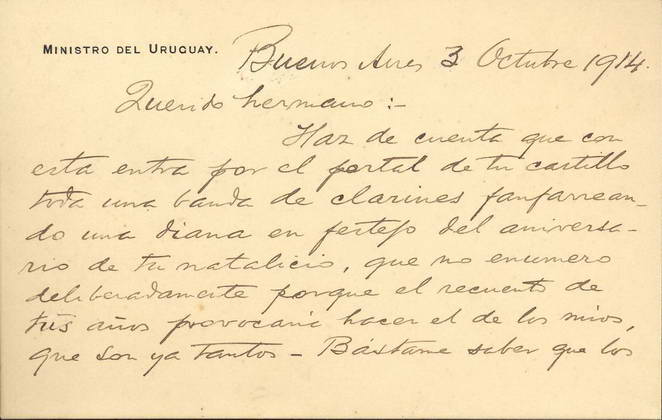 MINISTRO DEL URUGUAY.
Buenos Aires 3 Octubre 1914.
Querido hermano:-
Haz de cuenta que con
esta entra por el portal de tu castillo
toda una banda de clarines fanfarrean-
do una diana en festejo del aniversa-
rio de tu natalicio, que no enumero
deliberadamente porque el recuento de
tus años provocaria hacer el de los mios,
que son ya tantos - Bástame saber que los